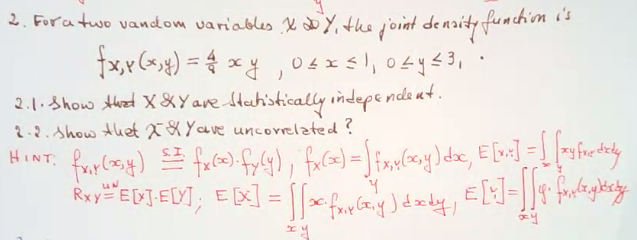 2. For a two random variables X & Y, the joint density function is
fx,y(x,y) = 4/9 xy , 0 ≤ x ≤ 1, 0 ≤ y ≤ 3, .
2.1. Show that X & Y are Statistically independent.
2.2. Show that X & Y are uncorrelated?
HINT: fx,y(x,y) S.I = fx(x)·fy(y), fx(x) = ∫y fx,y(x,y) dx, E[x,y] = ∫x∫y xy fx,y dxdy
Rxy UN = E[X]·E[Y]; E[X] = ∫∫xy x·fx,y(x,y) dxdy, E[Y] = ∫∫xy y·fx,y(x,y)dxdy